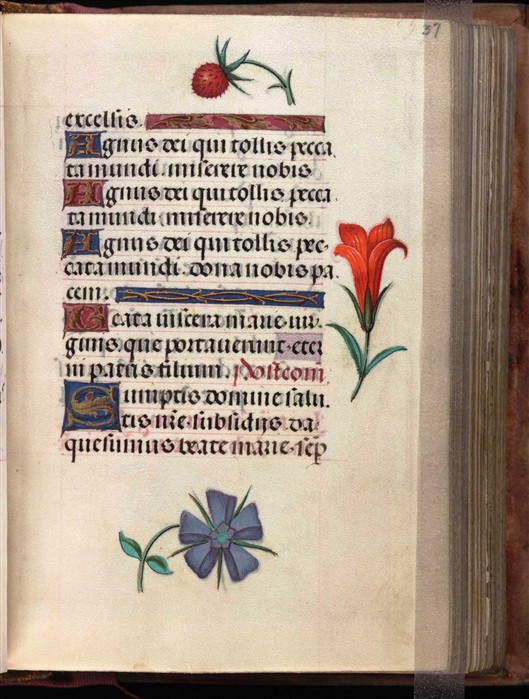 37
excelsis.
Agnus dei qui tollis pecca
ta mundi miserere nobis
Agnus dei qui tollis pecca
ta mundi miserere nobis.
Agnus dei qui tollis pec-
cata mundi. dona nobis pa
cem.
Beata viscera marie vir
ginis que portaverunt eter
ni patris filium. Postcom
Sumptis domine salu.
tis nr̃e subsidijs. da
quesumus beate marie. semp̱